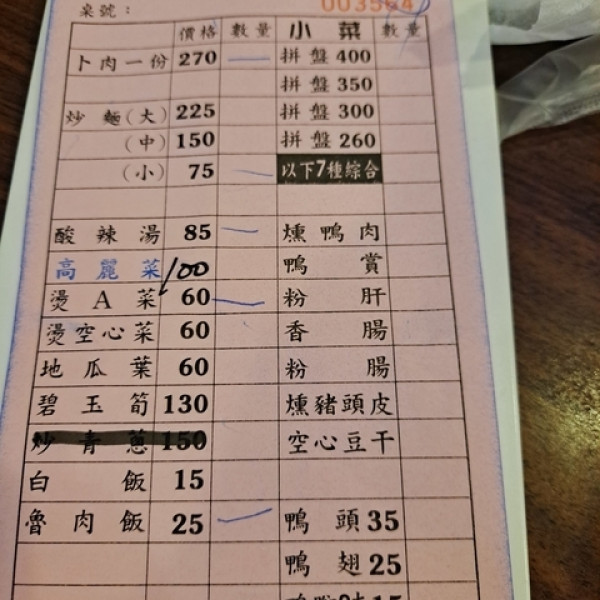 桌號： 003564
價格 數量 小菜 數量
卜肉一份 270 一 拼盤 400
拼盤 350
炒麵(大) 225 拼盤 300
(中) 150 拼盤 260
(小) 75 一 以下7種綜合
酸辣湯 85 一 燻鴨肉
高麗菜 100 鴨賞
燙A菜 60 一 粉肝
燙空心菜 60 香腸
地瓜葉 60 粉腸
碧玉筍 130 燻豬頭皮
炒青蔥 150 空心豆干
白飯 15
魯肉飯 25 一 鴨頭 35
鴨翅 25